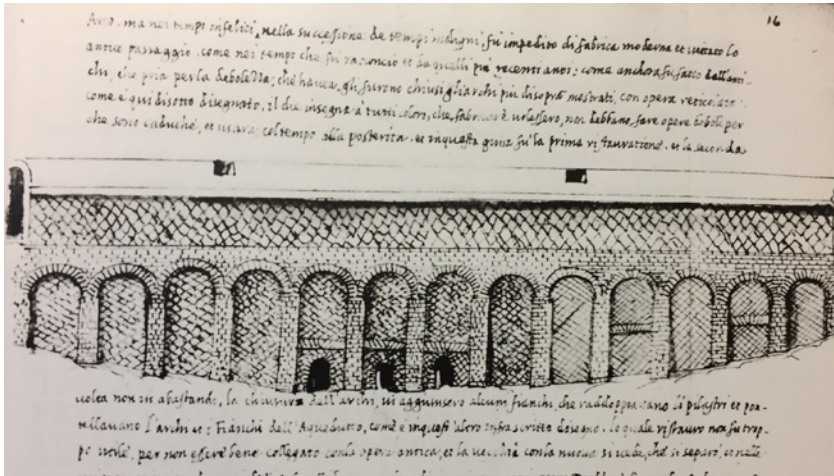 16
Arco. ma nei tempi infelici, nella successione de tempi maligni fu impedito di fabrica moderna et vietato lo
antico passaggio, come nei tempi che fu racconcio et da quelli piu recenti anoi; come anchora fu fatto dall'anti-
chi, che pria per la debolezza, che havea, gli furono chiusi gli archi piu disopra mostrati, con opera reticolata
come è qui disotto disegnato, il che insegna à tutti coloro, che fabricare volessero, non debbano, fare opere debole per
che sono caduche, et usara; col tempo alla posterita. et in questa guisa fu la prima ristauratione. et la seconda
volta non in abastando, la chiusura dell'archi, vi aggiunsero alcuni fianchi, che raddoppiavano li pilastri et
l'archi et i Fianchi dell'Aquedutto, come è in questo altro infrascritto disegno. lo quale ristauro non fu trop-
po utile, per non essere bene collegato con la opera antica, et la vecchia con la nuova si vede, che si separò, et nelle